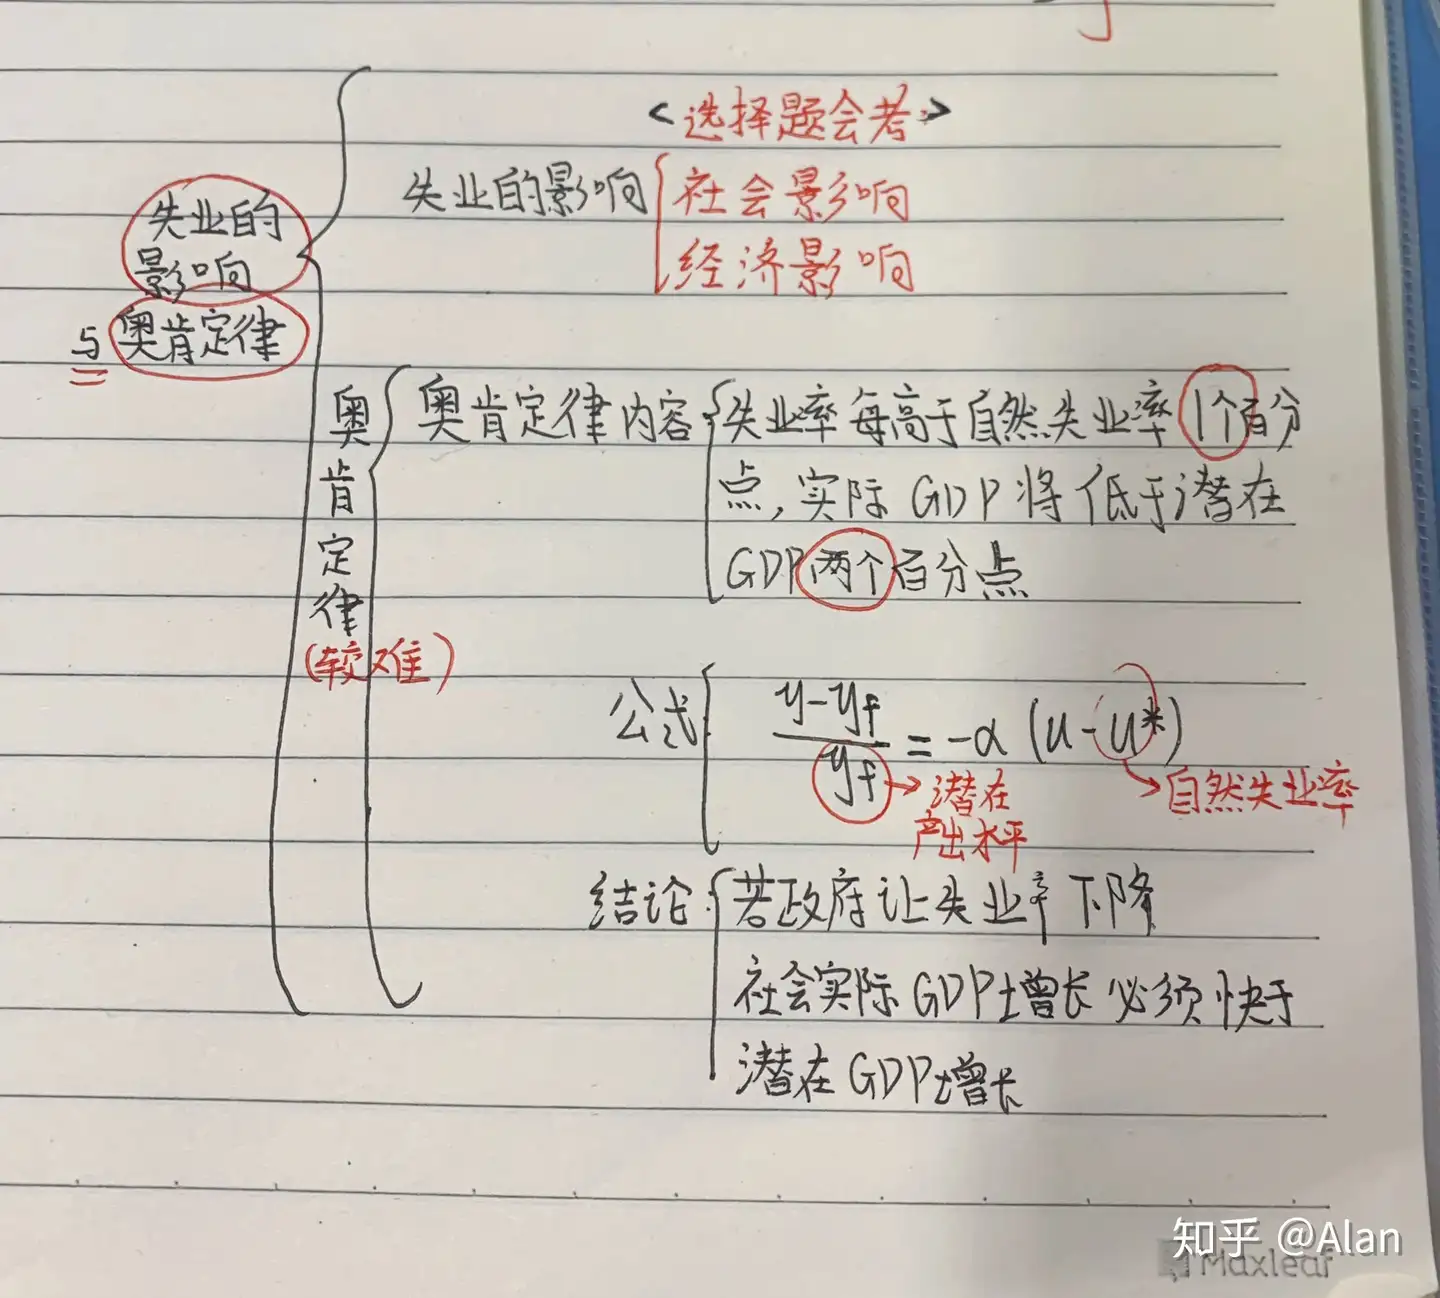 <选择题会考>
失业的影响
社会影响
经济影响
失业的
影响
与奥肯定律
奥肯定律
(较难)
奥肯定律内容
失业率每高于自然失业率1个百分
点,实际GDP将低于潜在
GDP两个百分点
公式
y-yf/yf=-α(u-u*)
潜在
产出水平
自然失业率
结论
若政府让失业率下降
社会实际GDP增长必须快于
潜在GDP增长
知乎 @Alan
Maxleaf